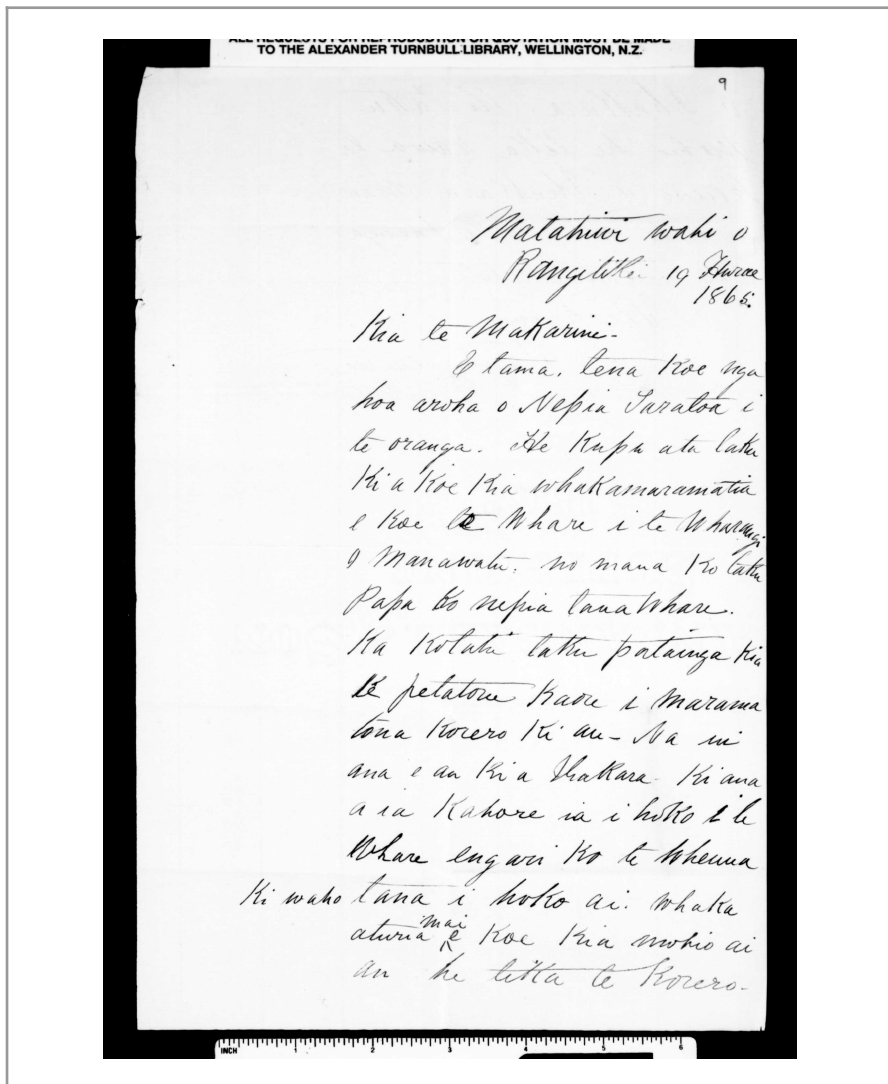 ALL REQUESTS FOR REPRODUCTION OR QUOTATION MUST BE MADE
TO THE ALEXANDER TURNBULL LIBRARY, WELLINGTON, N.Z.
9
Matahiwi wahi o
Rangitikei 19 Hurae
1865.
Kia te Makarini-
E tama. tena Koe nga
hoa aroha o Nepia Taratoa i
te oranga. He Kupu atu taku
Ki a Koe Kia whakamaramatia
e Koe te Whare i te Wharangi
o Manawatu. no mana Ko taku
Papa Ko nepia tana Whare.
Ka Kotahi taku patainga Kia
te petatone Kaore i marama
tona Korero Ki au- Na ui
ana e au Ki a Ihakara- Ki ana
a ia Kahore ia i hoko i te
Whare engari Ko te Whenua
Ki waho tana i hoko ai. whaka
aturia mai e Koe Kia mohio ai
au he tika te Korero-
INCH 1 2 3 4 5 6